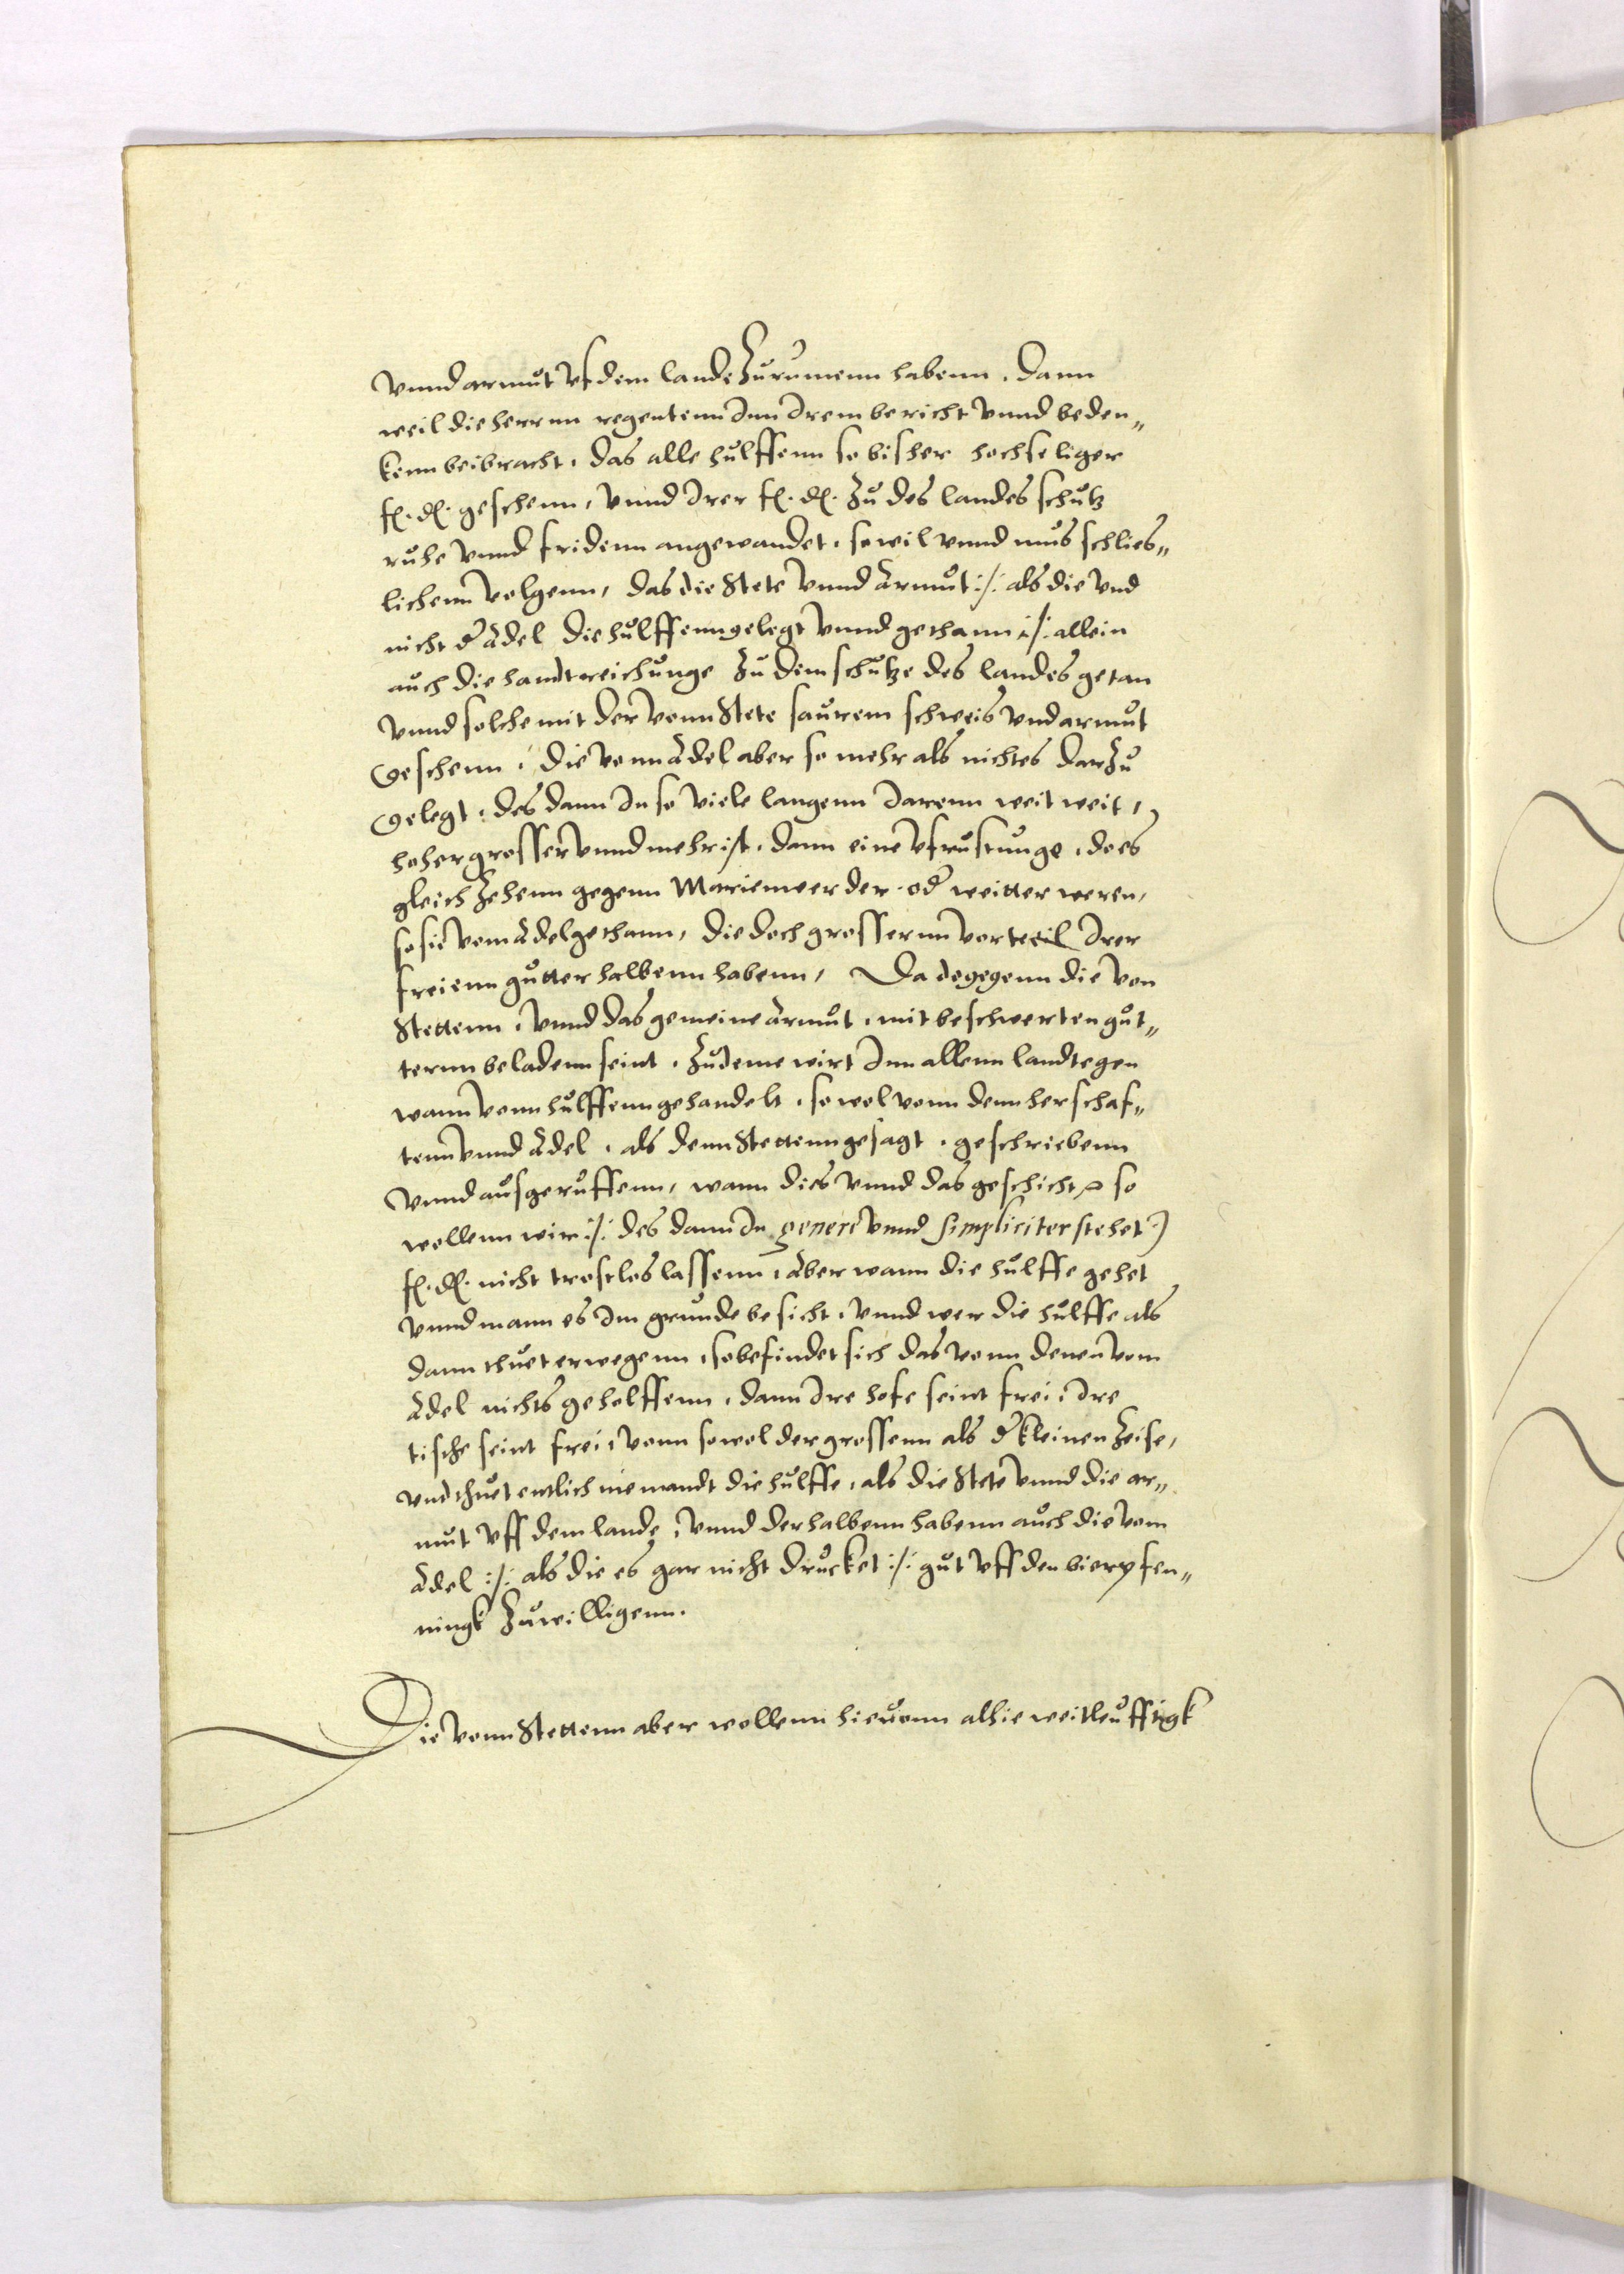 vnnd armůt vf dem lande Zůrumenn habenn. Dann
weil die herrnn regentenn Inn Irem bericht vnnd beden„
kenn beibracht. das alle hůlffenn so bisher hochseliger
f. d. geschenn, vnnd Irer f. d. Zů des landes schůtz
růhe vnnd fridenn angewandet. so wil vnnd můs schlies„
lichenn volgenn, das die Stete vnnd Armůt :/: als die vnd
nicht der Adel die hůlffenn gelegt vnnd gethann :/: allein
aůch die handtreichůnge Zů dem schůtze des landes getan
vnnd solche mit der vonn Stete saůrem schweis vnd armůt
geschenn. die vonn Adel aber so mehr als nichtes darZů
gelegt. des dann In so viele langenn Iarenn weit weit,
hoher grosser vnnd mehr ist. dann eine vfrůstůnge. do es
gleich Zehenn gegenn Marienwerder. oder weitter weren,
so sie vom Adel gethann, die doch grossernn vorteeil Irer
freienn gůtter halbenn habenn, Da degegenn die von
Stettenn, vnnd das gemeine Armůt. mit beschwerten gůt„
ternn beladenn seint. Zůdeme wirt Inn allenn landtegen
wann vonn hůlffenn gehandelt. so wol vonn denn herschaf„
tenn vnnd Adel. als denn Stettenn gesagt. geschriebenn
vnnd aůsgerůffenn, wann dies vnnd das geschicht so
wollenn wir :/: des dann In genere vnnd simpliciter stehet :)
f. d. nicht trostlos lassenn, Aber wann die hůlffe gehet
vnnd mann es Im grůnde besicht. vnnd wer die hůlffe als
dann thůet erwegenn, so befindet sich das vonn denen vom
Adel nichts geholffenn. dann Ire hofe seint frei, Ire
tische seint frei, vonn sowol der grossenn als der kleinen Zeise,
vnd thůet entlich niemandt die hůlffe. als die Stete vnnd die ar„
můt vff dem lande. vnnd derhalbenn habenn aůch die vom
Adel :/: als die es gar nicht drůcket :/: gůt vff den bierpfen„
ningk Zůwilligenn.
Die vonn Stettenn aber wollenn hieůonn alhie weitleůfftigk